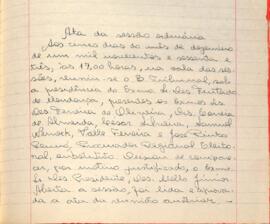 Ata da sessão ordinária
Aos cinco dias do mês de dezembro
de um mil novecentos e sessenta e
três, às 17,00 horas, na sala das ses-
sões, reuniu-se o E. Tribunal, sob
a presidência do Exmo. Sr. Des. Furtado
de Mendonça, presentes os Exmos. Srs.
Des. Ferreira de Oliveira, Drs.
de Almeida, Cesar Silveira,
Valle Ferreira e José Pinto
Procurador Regional Eleito-
ral, substituto. Deixou de compare-
cer, por motivo justificado, o Exmo.
Sr. Des. Presidente, Des. Mello Júnior.
Aberta a sessão, foi lida e aprova-
da a ata da reunião anterior. -